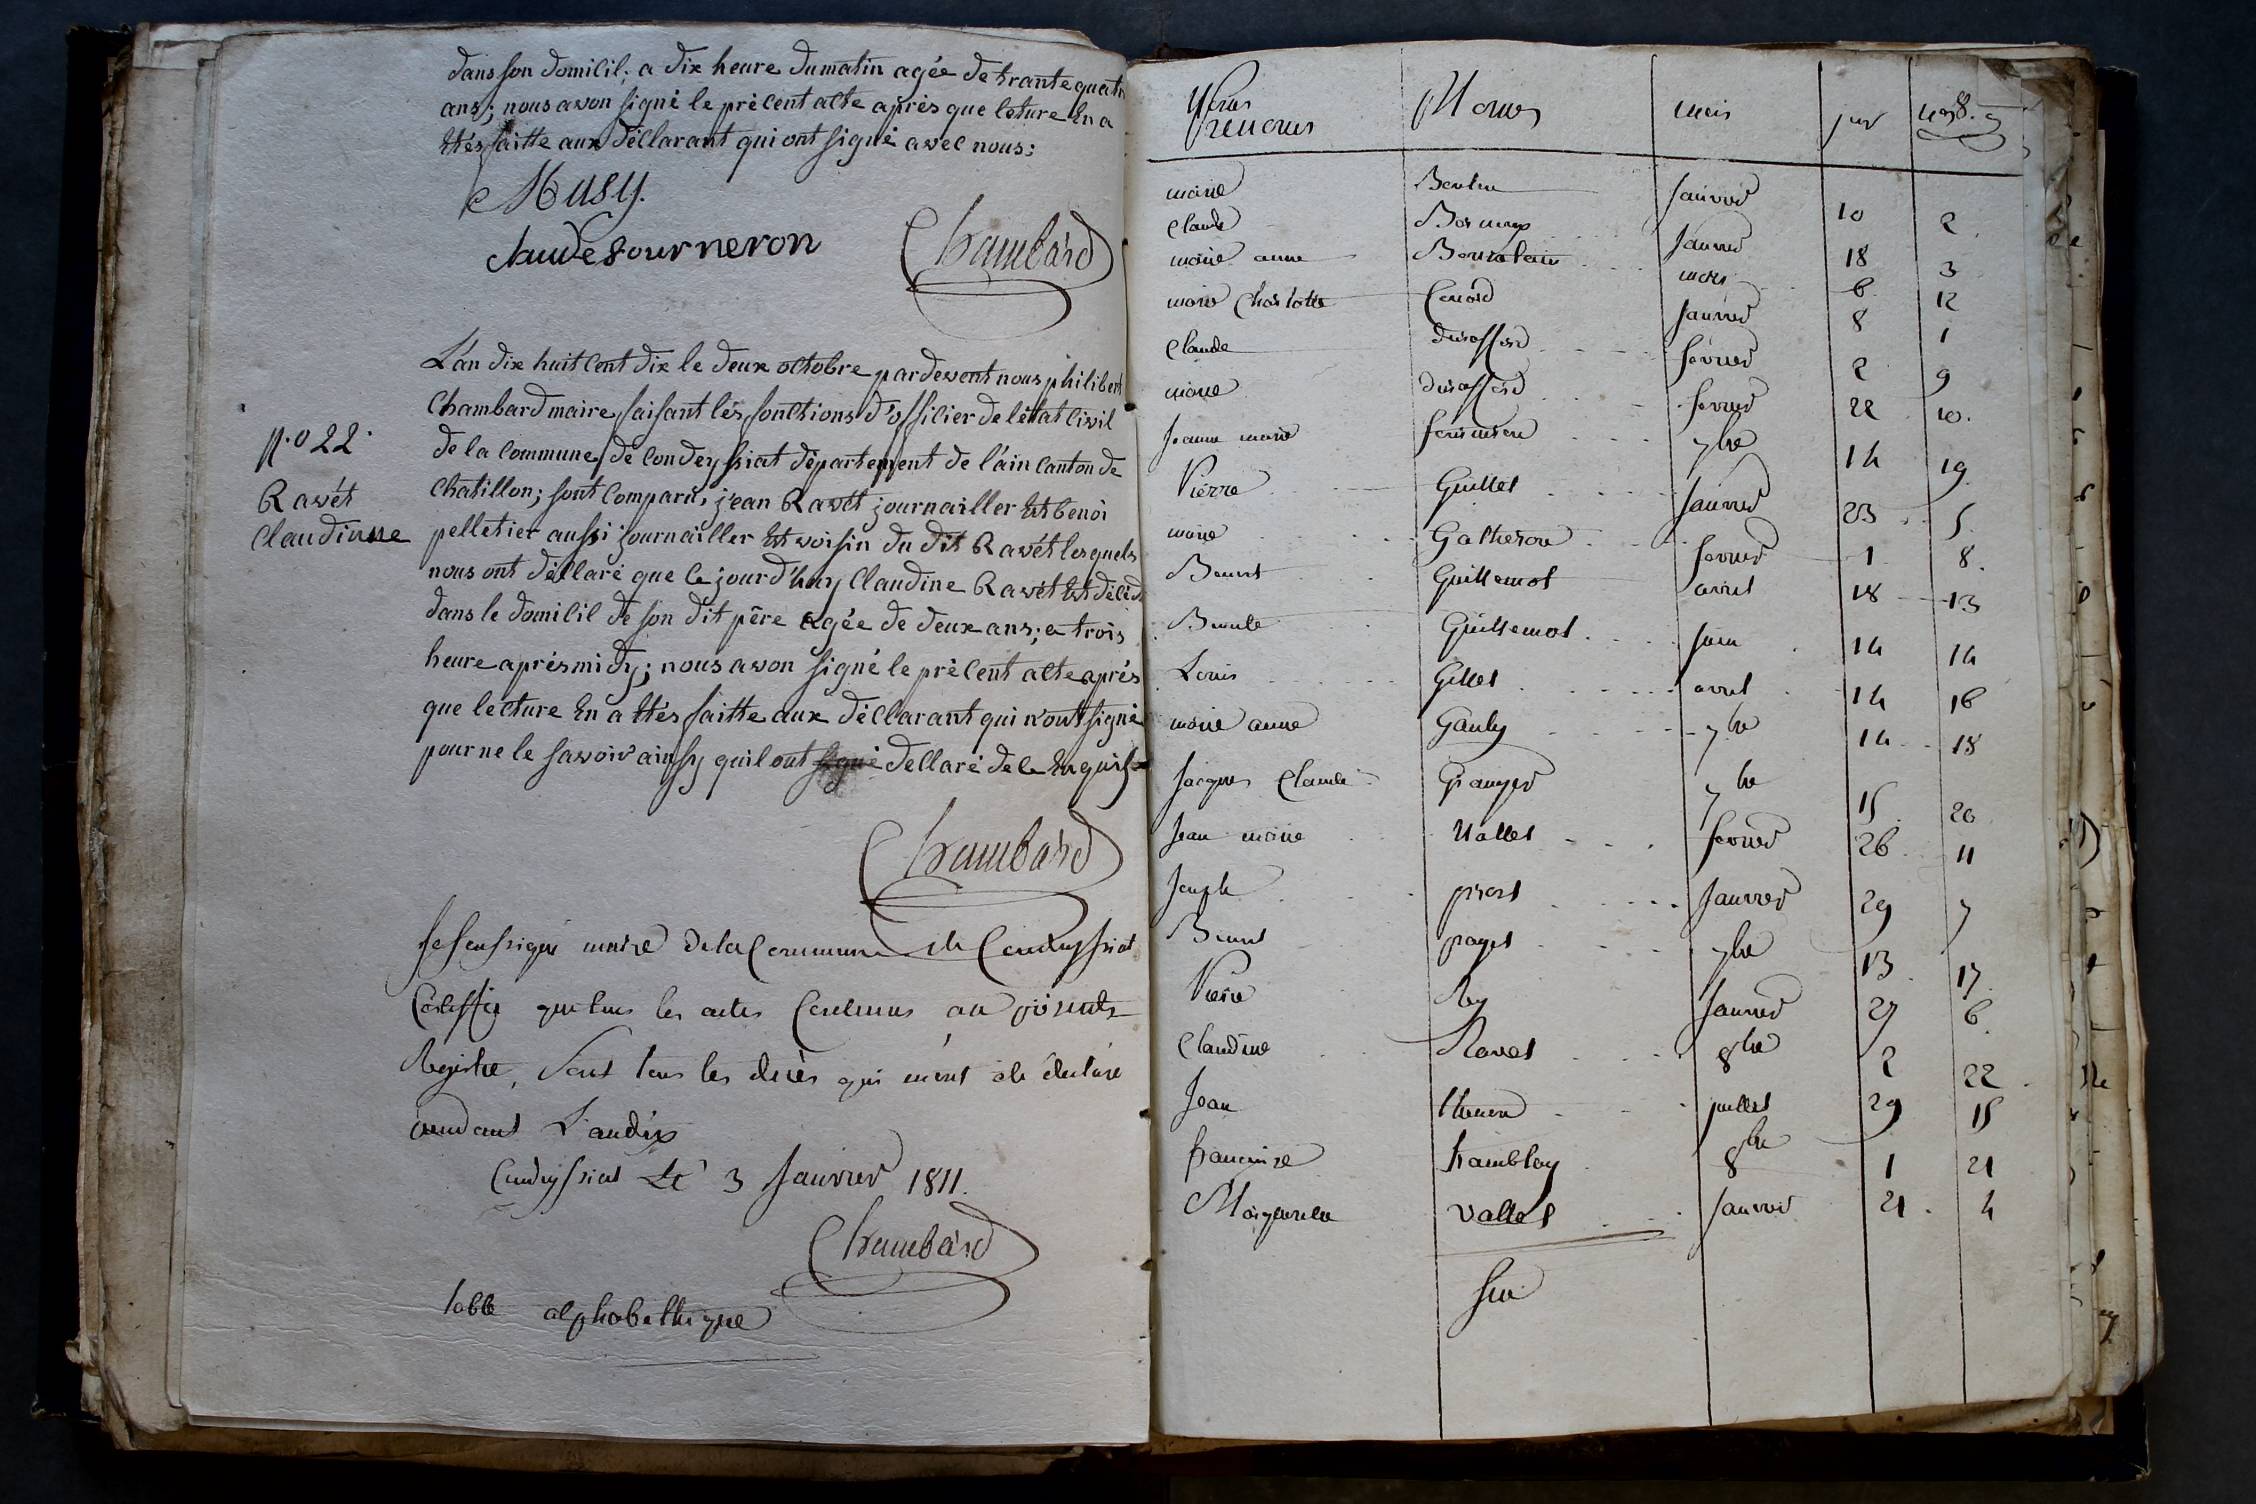 dans son domicil; a dix heure du matin agée de trante quatr
ans; nous avon signé le prècent acte après que leture En a
Etés faitte aux Déclarant qui ont signé avec nous;
Musy.
claude fourneron
Chambard
L'an dix huit cent dix le deux octobre pardevent nous philibert
Chambard maire faisant lés fonctions d'officier de l'ètat civil
n.o 22.
de la commune de condeyssiat département de l'ain canton de
Chatillon; sont comparus jean Ravét journailler Et benoi
Ravét
Claudinne
pelletier aussi journailler Et voisin du dit Ravét lesquels
nous ont déclaré que ce jourd'huy Claudine Ravét Est décéd
dans le domicil de son dit père agée de deux ans; a trois
heure aprés midy; nous avon signé le prècent acte aprés
que lecture En a Etés faitte aux déclarant qui n'ont signé
pour ne le savoir ainsy quil ont signé dellaré de ce Enquis
Chambard
Je soussigné maire de la Commune de Condeyssiat
Certiffie que tous les actes Contenus au présents
Registre, Sont tous les décès qui m'ont été déclaré
pendant L'an dix
Condeyssiat Le 3 Janvier 1811.
Chambard
table alphabethique
Prenoms Noms mois jour
marie janvier 10 2
Claude janvier 18 3
marie anne mars 6 12
marie Charlotte Cenard janvier 8 1
Claude durafford fevrier 2 9
marie durafford fevrier 22 10.
jeanne marie 7bre 14 19
Pierre Guillet janvier 23 5
marie Gatheron fevrier 1 8.
Benoit Guillemot avril 18 13
Benoite Guillemot juin 14 14
Louis Gillet avril 14 16
marie anne Gauly 7bre 14 18
Jacques Claude Granger 7bre 15 20
Jean marie Nallet fevrier 26 11
Joseph janvier 29 7
Benoit paget 7bre 13 17
Pierre Rey janvier 27 6
Claudine Ravet 8bre 2 22
Jean juillet 29 15
francoise tramblay 8bre 1 21
Marguerite vallet janvier 21 4
fin